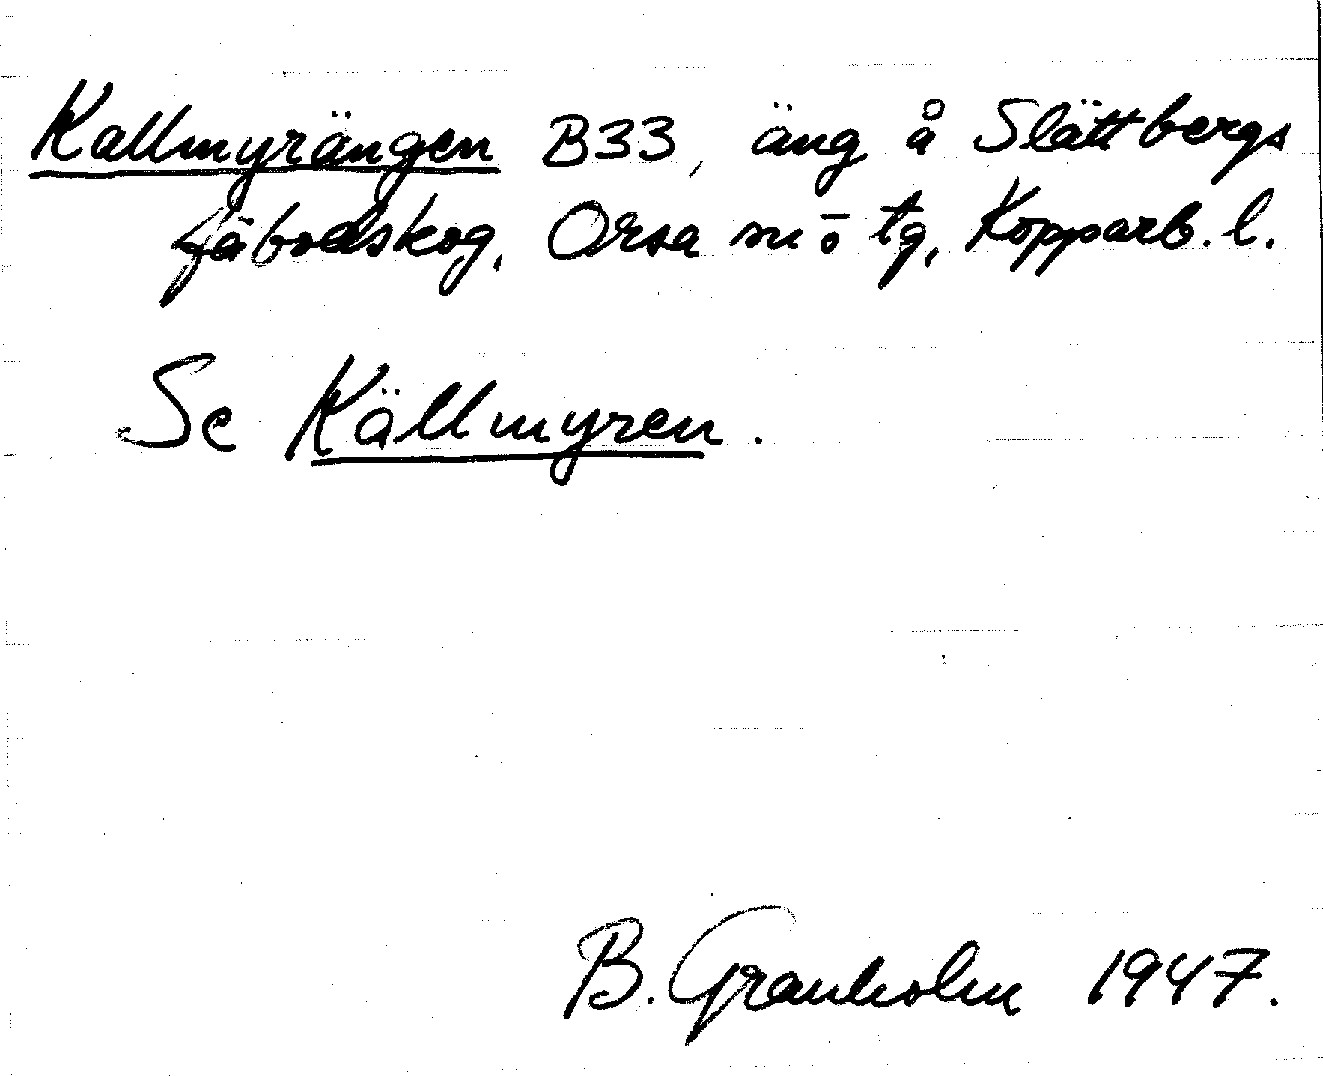 Kallmyrängen B33, äng å Slättbergs
fäbodskog, Orsa sn ō tg, Kopparb. l.
Se Källmyren.
B. Granholm 1947.